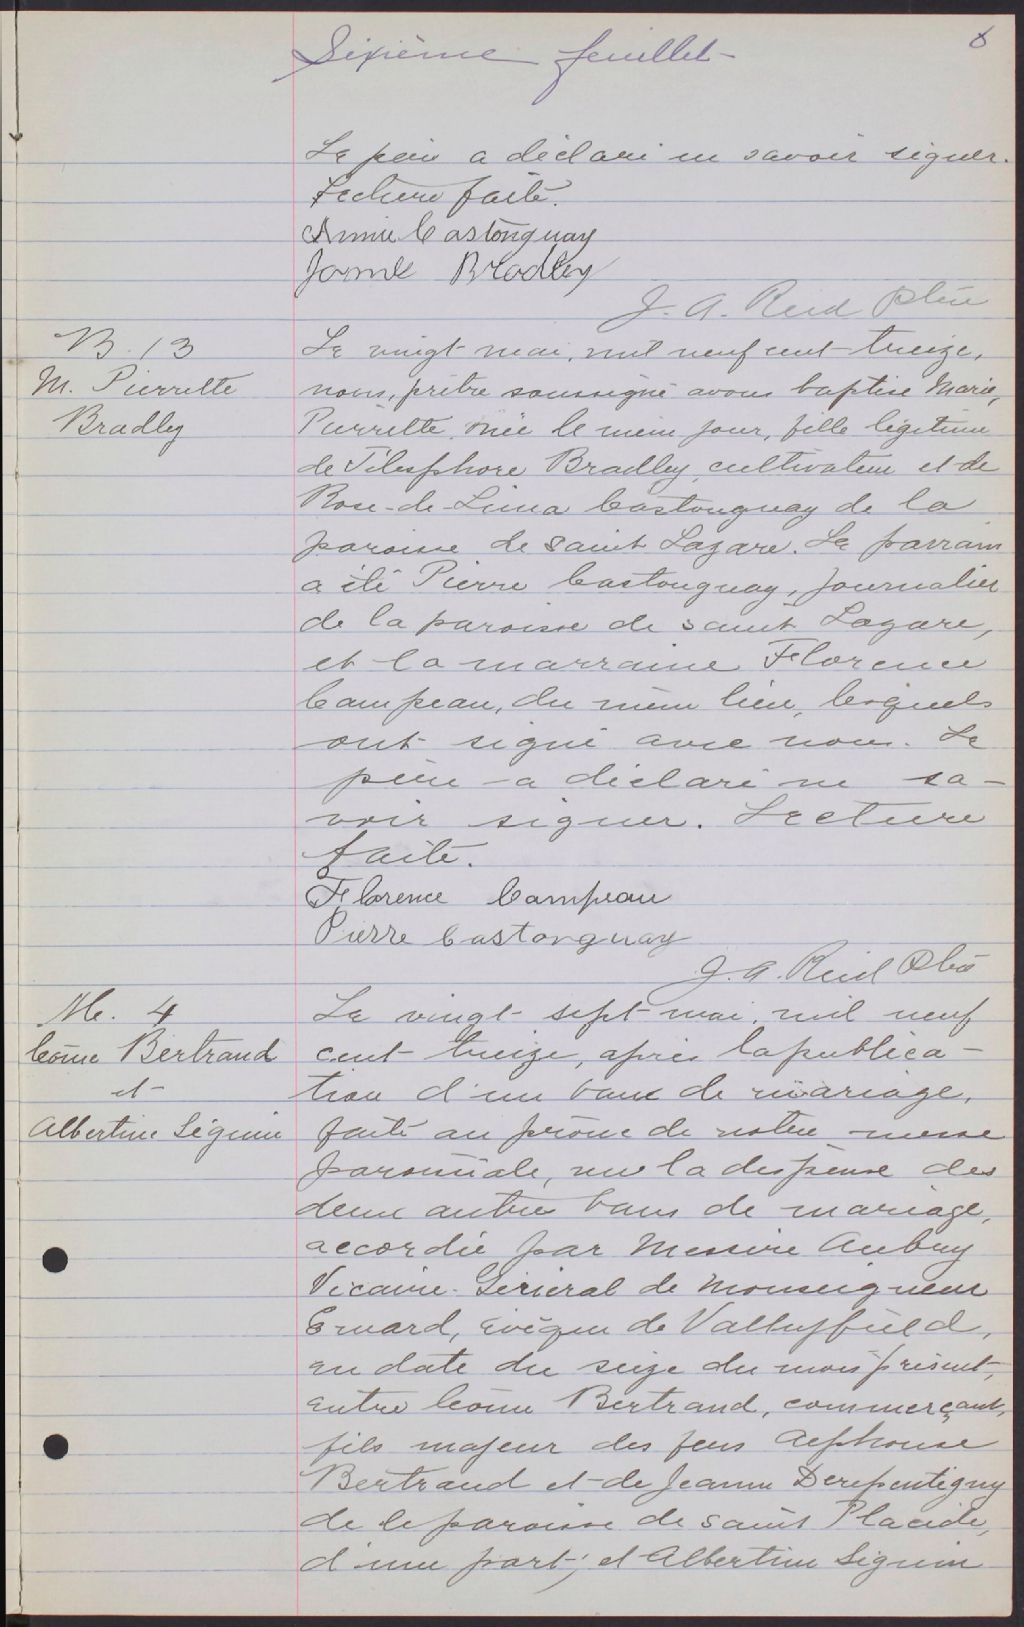 Sixième feuillet
6
Le père a déclaré ne savoir signer.
Lecture faite.
Annie Castonguay
James Bradley
J. A. Reid Ptre
B. 13
M. Pierrette
Bradley
Le vingt mai, mil neuf cent treize,
nous, prêtre soussigné avons baptisé Marie,
Pierrette, née le même jour, fille légitime
de Télesphore Bradley, cultivateur et de
Rose-de-Lima Castonguay de la
paroisse de saint Lazare. Le parrain
a été Pierre Castonguay, journalier
de la paroisse de saint Lazare,
et la marraine Florence
Campeau, du même lieu, lesquels
ont signé avec nous. Le
père a déclaré ne sa-
voir signer. Lecture
faite.
Florence Campeau
Pierre Castonguay
J. A. Reid Ptre
M. 4
Côme Bertrand
et
Albertine Séguin
Le vingt-sept mai, mil neuf
cent treize, après la publica-
tion d'un banc de mariage,
faite au prône de notre messe
paroissiale, vu la dispense des
deux autres bans de mariage,
accordée par Messire Aubry
Vicaire-Général de Monseigneur
Emard, évêque de Valleyfield,
en date du seize du mois présent,
entre Côme Bertrand, commerçant,
fils majeur des feus Alphonse
Bertrand et de Jeanne Derepentigny
de la paroisse de saint Placide,
d'une part; et Albertine Séguin